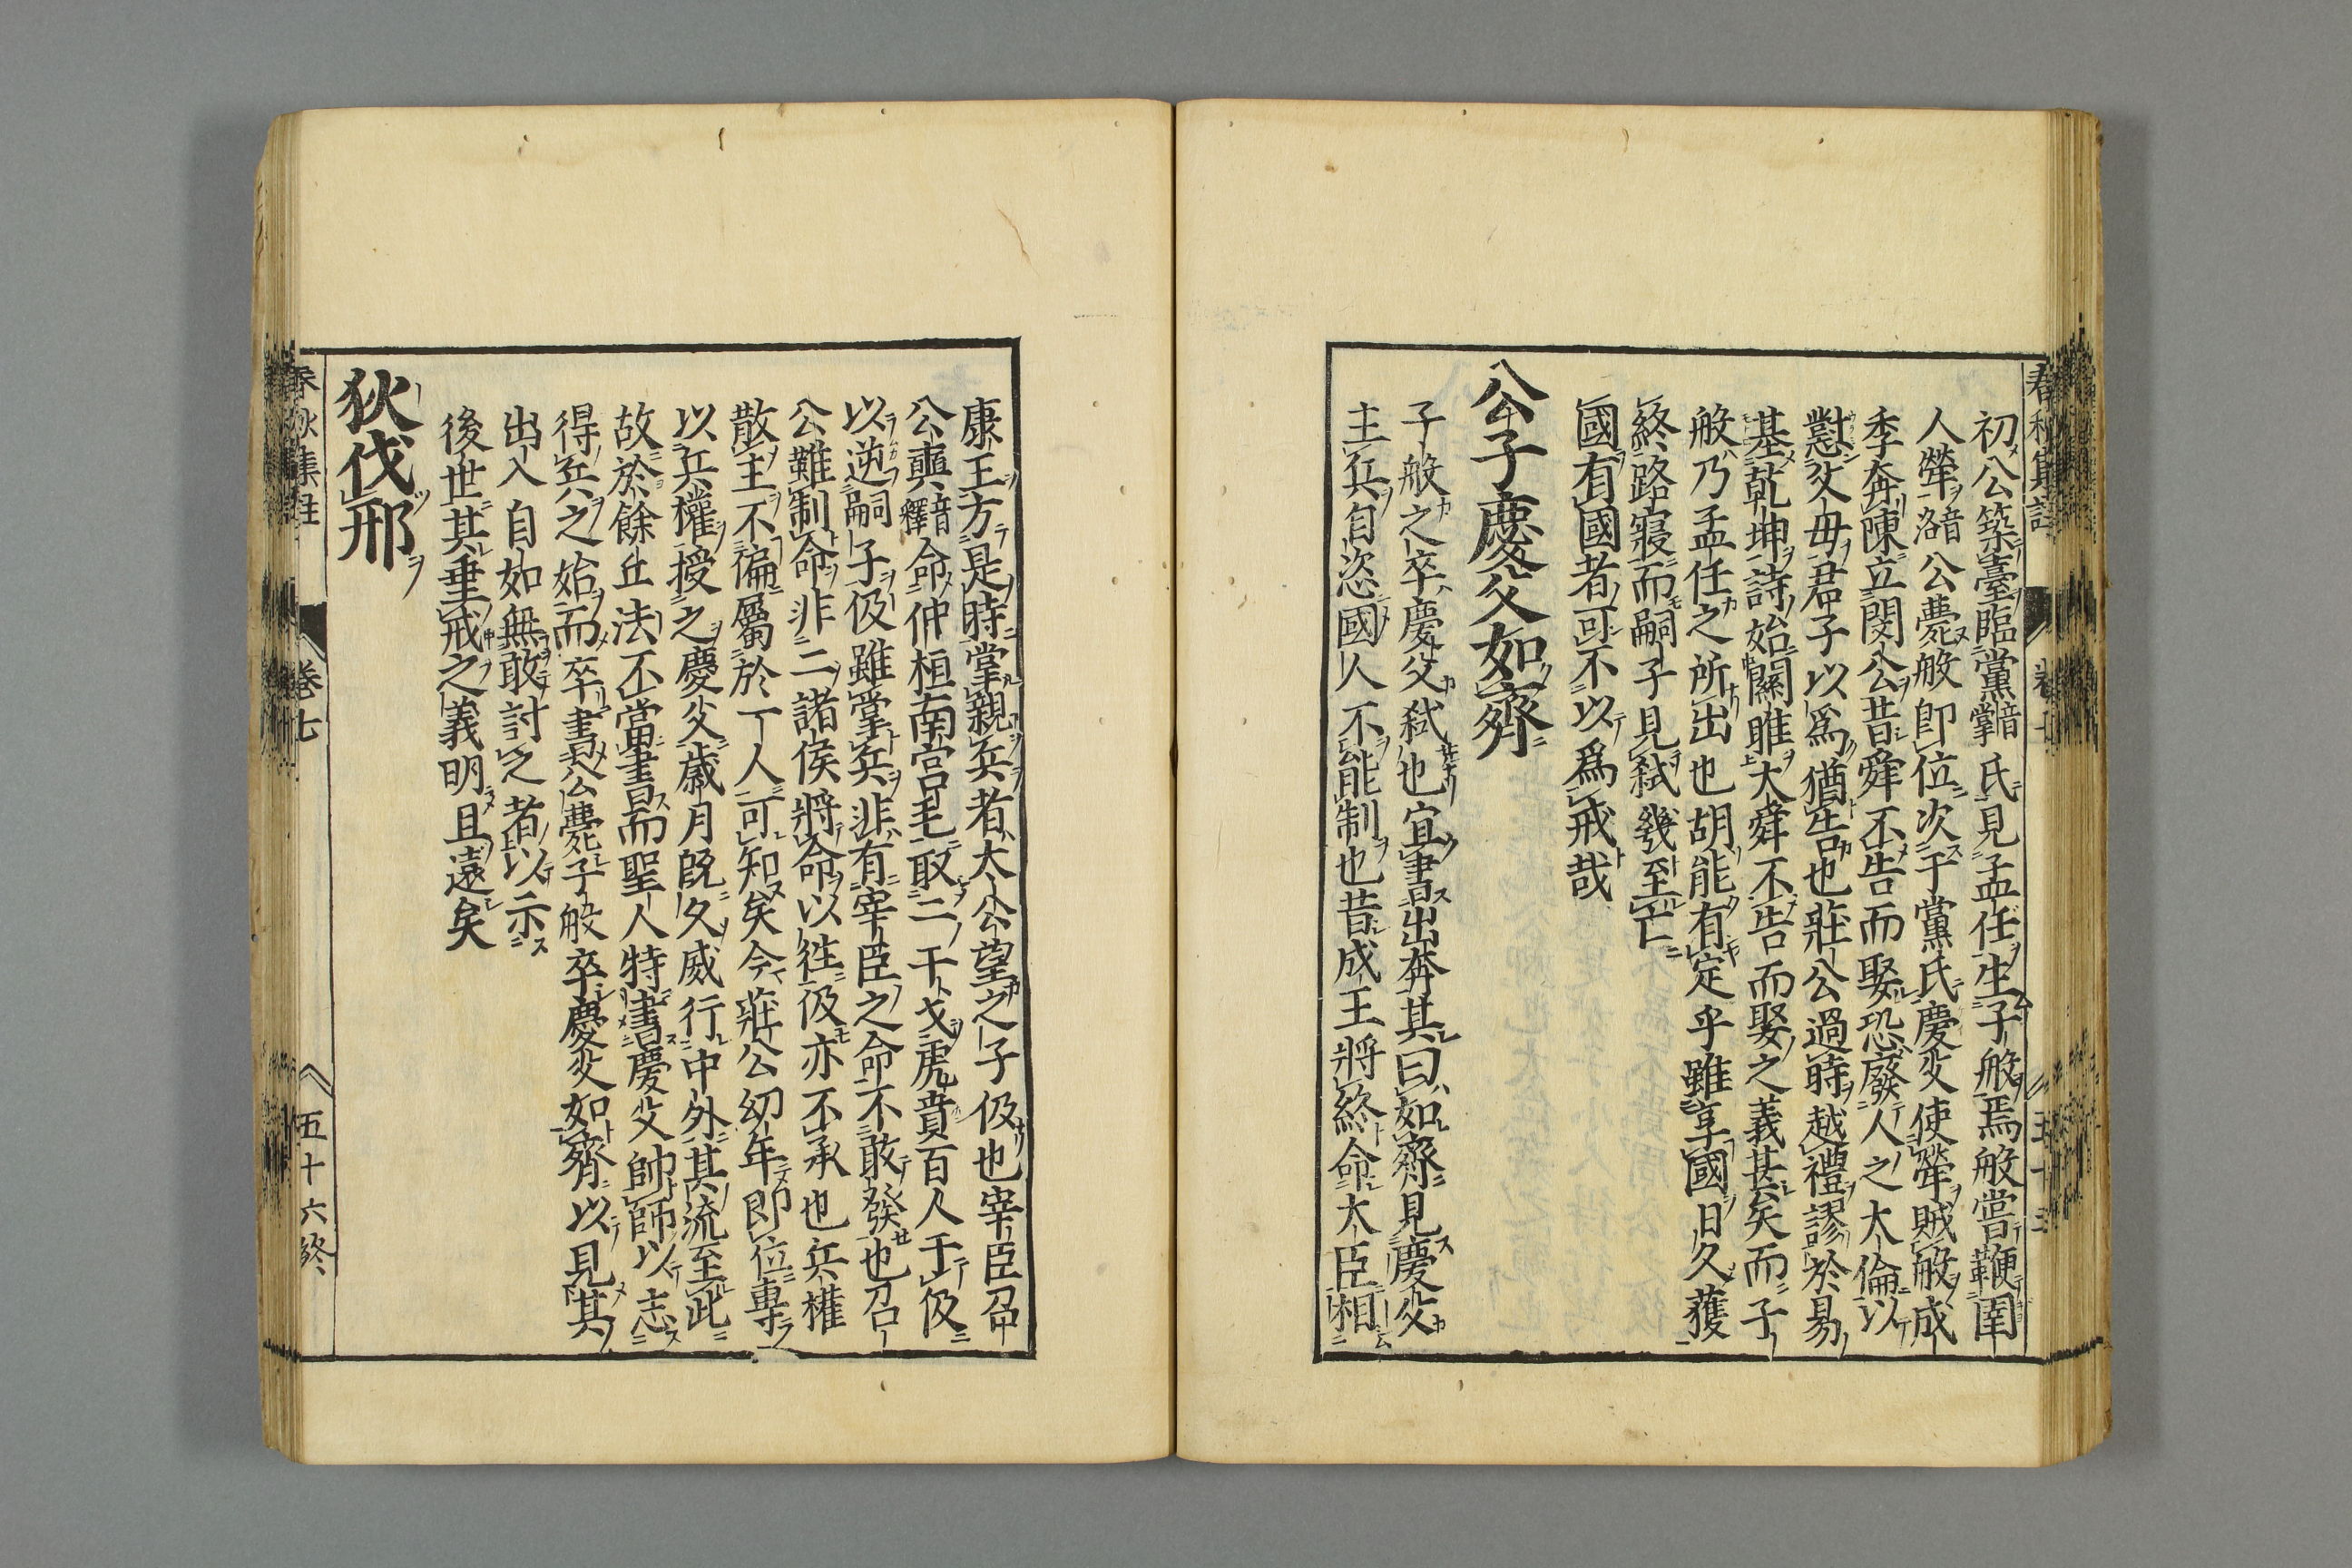 初公築臺臨黨音掌氏見孟任生子般焉般嘗鞭圉
人犖音洛公薨般即位次于黨氏慶父使犖賊般成
季奔陳立閔公昔舜不告而娶恐廢人之大倫以
懟父母君子以爲猶告也莊公過時越禮謬於易
基乾坤詩始關雎大舜不告而娶之義甚矣而子
般乃孟任之所出也胡能有定乎雖享國日久獲
終路寢而嗣子見弑幾至亡
國有國者可不以爲戒哉
公子慶父如齊
子般之卒慶父弑也宜書出奔其曰如齊見慶父
主兵自恣國人不能制也昔成王將終命大臣相
康王方是時掌親兵者太公望之子伋也宰臣召
公奭音釋命仲桓南宮毛取二干戈虎賁百人于伋
以逆嗣子伋雖掌兵非有宰臣之命不敢發也召
公雖制命非二諸侯將命以往伋亦不承也兵權
散主不偏屬於一人可知矣今莊公幼年即位專
以兵權授之慶父歲月既久威行中外其流至此
故於餘丘法不當書而聖人特書慶父帥師以志
得兵之始而卒書公薨子般卒慶父如齊以見其
出入自如無敢討之者以示
後世其垂戒之義明且遠矣
狄伐邢
春秋集註 卷七 五十六終